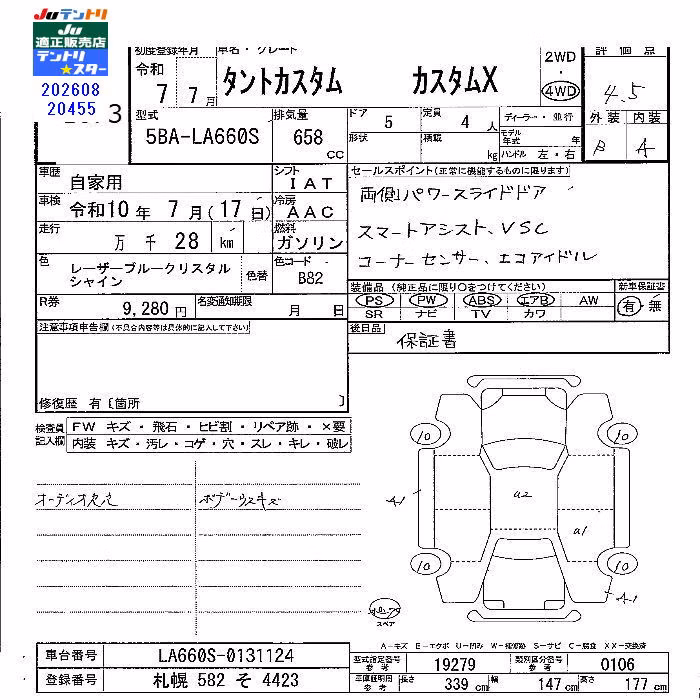 Juテントリ
Ju
適正販売店
テントリ
★スター
202608
20455
3
初度登録年月 車名・グレード
令和 7 年 7 月 タントカスタム カスタムX
2WD
・
4WD
評価点
4.5
外装 内装
B A
型式 5BA-LA660S
排気量 658 CC
ドア 5
定員 4 人
形状
積載 kg
ディーラー・並行
モデル年式 年
ハンドル 左・右
車歴 自家用
シフト IAT
車検 令和10 年 7 月(17 日)
冷房 AAC
走行 万 千 28 km
燃料 ガソリン
色 レーザーブルークリスタルシャイン 色替
色コード B82
R券 9,280 円
名変通知期限 月 日
セールスポイント(正常に機能するものに限ります)
両側パワースライドドア
スマートアシスト、VSC
コーナーセンサー、エコアイドル
装備品(純正品に限り○をつけてください)
PS PW ABS エアB AW
SR ナビ TV カワ
新車保証書
有・無
後日品 保証書
注意事項申告欄(不具合内容等は具体的に記入して下さい)
修復歴 有〔箇所 〕
検査員記入欄
FW キズ・飛石・ヒビ割・リペア跡・×要
内装 キズ・汚レ・コゲ・穴・スレ・キレ・破レ
オーディオ欠品
ボデーウスキズ
10 10
A1 a2 a1
10 10
A-1
スペア
A-キズ E-エクボ U-凹み W-補修跡 S-サビ C-腐食 XX-交換済
車台番号 LA660S-0131124
登録番号 札幌 582 そ 4423
型式指定番号参考 19279
類別区分番号参考 0106
車庫証明用参考 長さ 339 cm 幅 147 cm 高さ 177 cm